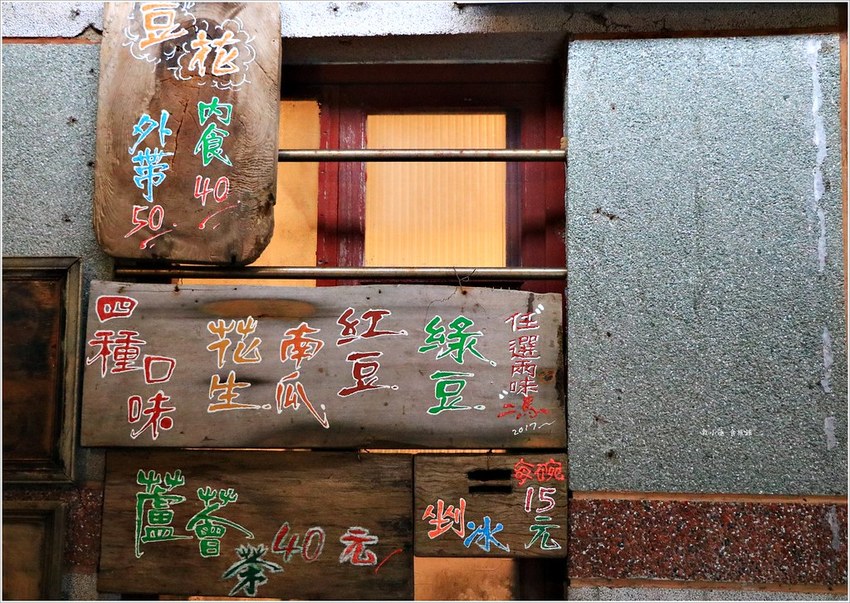 豆花
內食 40
外帶 50
四種口味
花生. 南瓜. 紅豆. 綠豆.
任選兩味
2017
蘆薈茶 40元
每碗 15元
剉冰